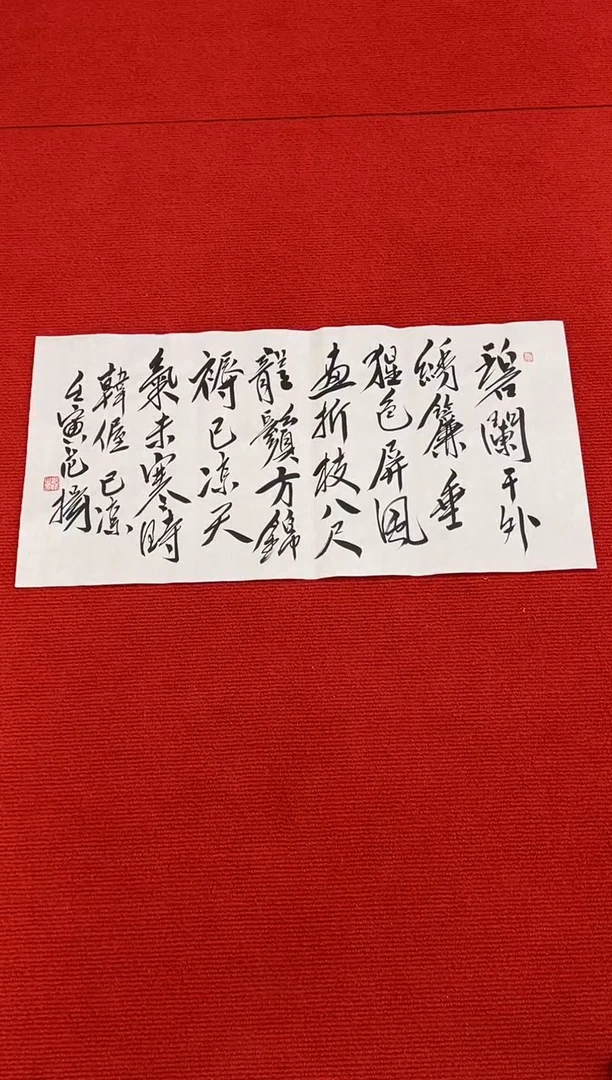 碧闌干外
綉簾垂
猩色屏風
画折枝八尺
龍鬚方錦
褥已凉天
氣未寒時
韓偓已凉
壬寅